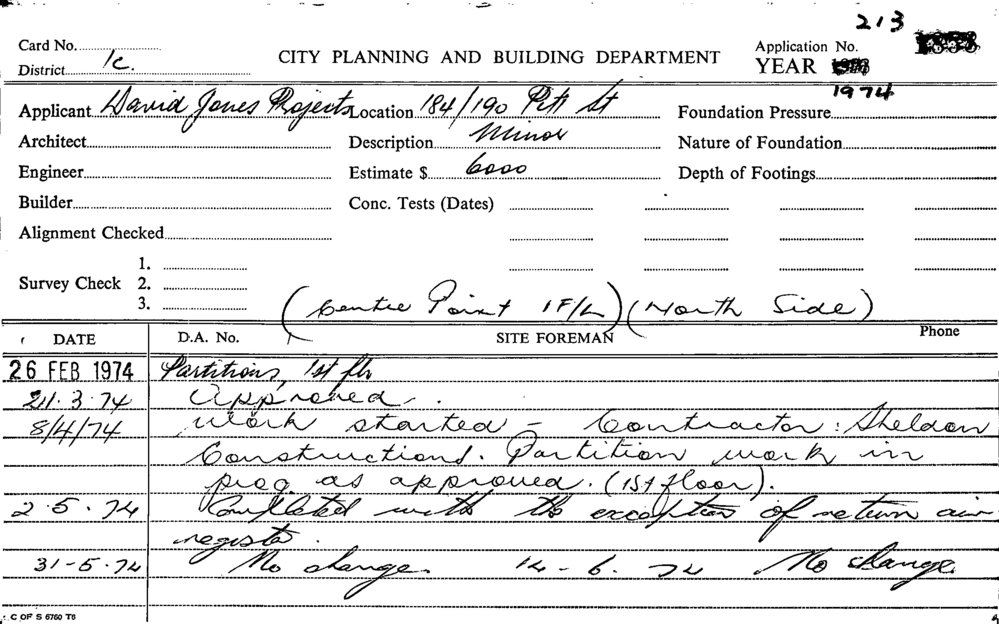 213
Card No.
District 1c.
CITY PLANNING AND BUILDING DEPARTMENT
Application No.
YEAR
1974
Applicant David Jones Projects Location 184/190 Pitt St Foundation Pressure
Architect Description Minor Nature of Foundation
Engineer Estimate $ 6000 Depth of Footings
Builder Conc. Tests (Dates)
Alignment Checked
Survey Check 1.
2.
3.
(Centre Point 1 F/L) (North Side)
DATE D.A. No. SITE FOREMAN Phone
26 FEB 1974 Partitions, 1st flr
21.3.74 Approved.
8/4/74 Work started - Contractor: Sheldon
Constructions. Partition work in
prog. as approved. (1st floor).
2.5.74 Completed with the exception of return air
register.
31-5.74 No change. 14-6.74 No change
C OF S 6760 T6